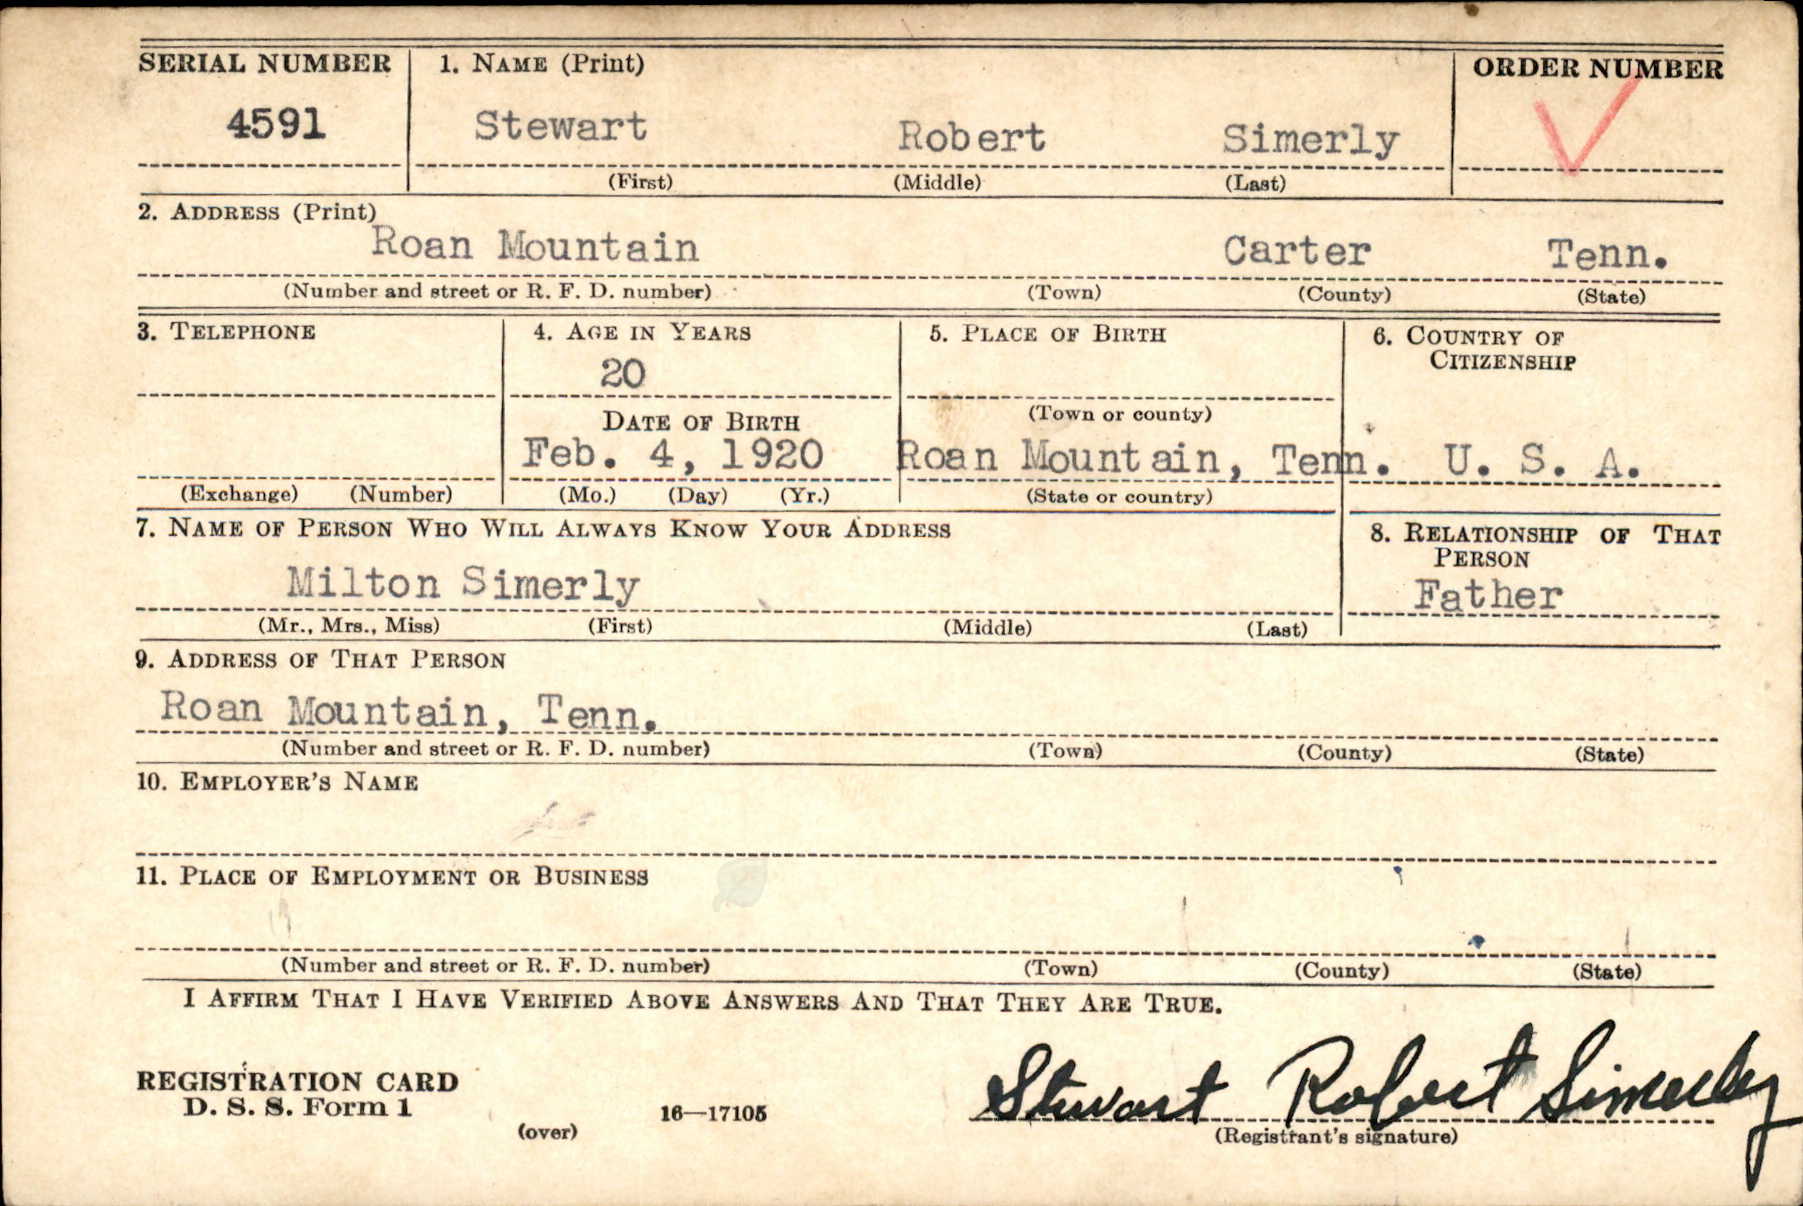 SERIAL NUMBER 1. NAME (Print) ORDER NUMBER
4591 Stewart Robert Simerly
(First) (Middle) (Last)
2. ADDRESS (Print)
Roan Mountain Carter Tenn.
(Number and street or R. F. D. number) (Town) (County) (State)
3. TELEPHONE 4. AGE IN YEARS 5. PLACE OF BIRTH 6. COUNTRY OF
CITIZENSHIP
20
(Town or county)
DATE OF BIRTH
Feb. 4, 1920 Roan Mountain, Tenn. U. S. A.
(Exchange) (Number) (Mo.) (Day) (Yr.) (State or country)
7. NAME OF PERSON WHO WILL ALWAYS KNOW YOUR ADDRESS 8. RELATIONSHIP OF THAT
PERSON
Milton Simerly Father
(Mr., Mrs., Miss) (First) (Middle) (Last)
9. ADDRESS OF THAT PERSON
Roan Mountain, Tenn.
(Number and street or R. F. D. number) (Town) (County) (State)
10. EMPLOYER'S NAME
11. PLACE OF EMPLOYMENT OR BUSINESS
(Number and street or R. F. D. number) (Town) (County) (State)
I AFFIRM THAT I HAVE VERIFIED ABOVE ANSWERS AND THAT THEY ARE TRUE.
REGISTRATION CARD
D. S. S. Form 1 16—17105 Stewart Robert Simerley
(over) (Registrant's signature)